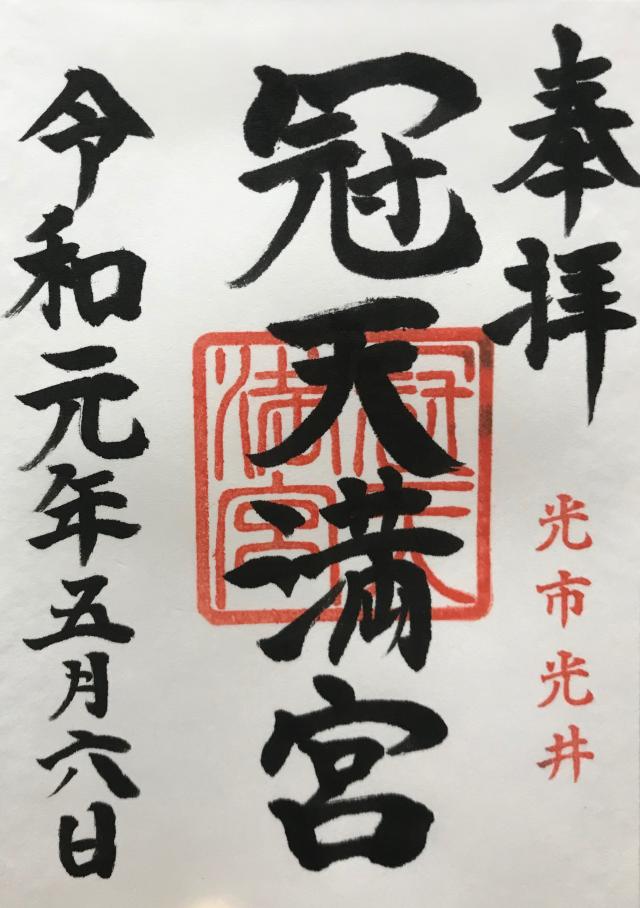 奉拝
光市光井
冠天満宮
令和元年五月六日